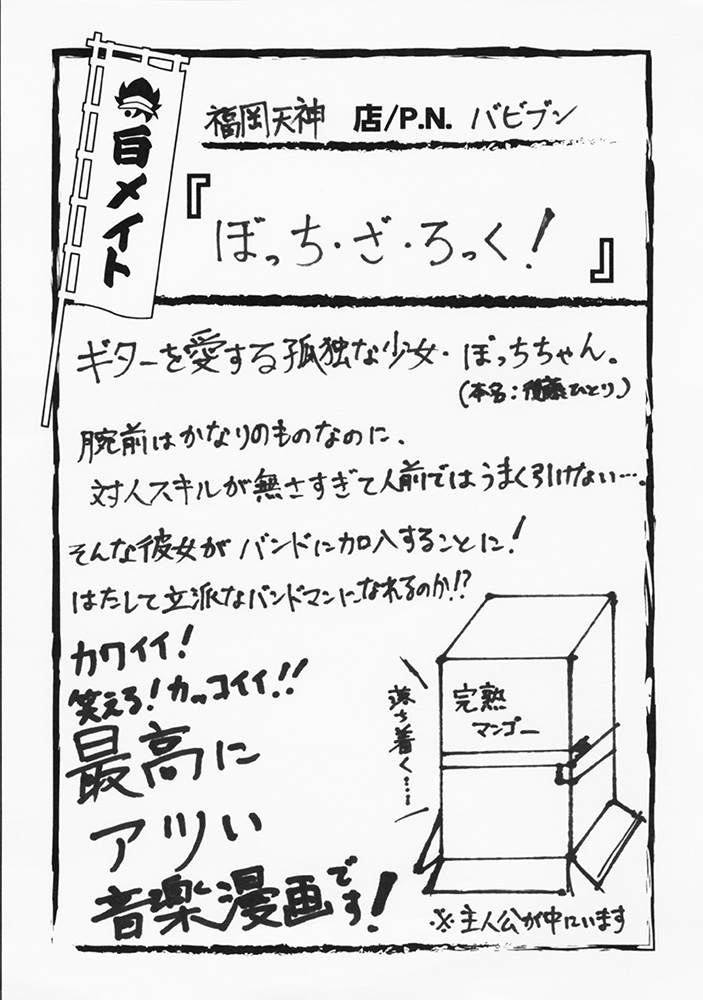 白メイト
福岡天神 店/P.N. バビブン
『ぼっち・ざ・ろっく!』
ギターを愛する孤独な少女・ぼっちちゃん。
(本名:後藤ひとり。)
腕前はかなりのものなのに、
対人スキルが無さすぎて人前ではうまく引けない…。
そんな彼女がバンドに加入することに!
はたして立派なバンドマンになれるのか!?
カワイイ!
笑える!カッコイイ!!
最高に
アツい
音楽漫画です!
落ち着く……
完熟
マンゴー
※主人公が中にいます